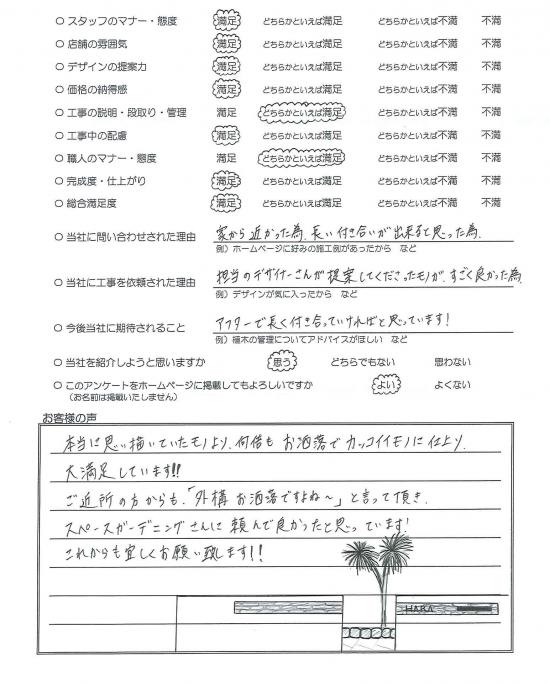 ○ スタッフのマナー・態度 満足 どちらかといえば満足 どちらかといえば不満 不満
○ 店舗の雰囲気 満足 どちらかといえば満足 どちらかといえば不満 不満
○ デザインの提案力 満足 どちらかといえば満足 どちらかといえば不満 不満
○ 価格の納得感 満足 どちらかといえば満足 どちらかといえば不満 不満
○ 工事の説明・段取り・管理 満足 どちらかといえば満足 どちらかといえば不満 不満
○ 工事中の配慮 満足 どちらかといえば満足 どちらかといえば不満 不満
○ 職人のマナー・態度 満足 どちらかといえば満足 どちらかといえば不満 不満
○ 完成度・仕上がり 満足 どちらかといえば満足 どちらかといえば不満 不満
○ 総合満足度 満足 どちらかといえば満足 どちらかといえば不満 不満
○ 当社に問い合わせされた理由 家から近かった為、長い付き合いが出来ると思った為。
例）ホームページに好みの施工例があったから など
○ 当社に工事を依頼された理由 担当のデザイナーさんが提案してくださったモノが、すごく良かった為
例）デザインが気に入ったから など
○ 今後当社に期待されること アフターで長く付き合っていければと思っています！
例）植木の管理についてアドバイスがほしい など
○ 当社を紹介しようと思いますか 思う どちらでもない 思わない
○ このアンケートをホームページに掲載してもよろしいですか よい よくない
（お名前は掲載いたしません）
お客様の声
本当に思い描いていたモノより、何倍もお洒落でカッコイイモノに仕上り、
大満足しています!!
ご近所の方からも、「外構 お洒落ですよね〜」と言って頂き、
スペースガーデニングさんに頼んで良かったと思っています！
これからも宜しくお願い致します！！
HARA